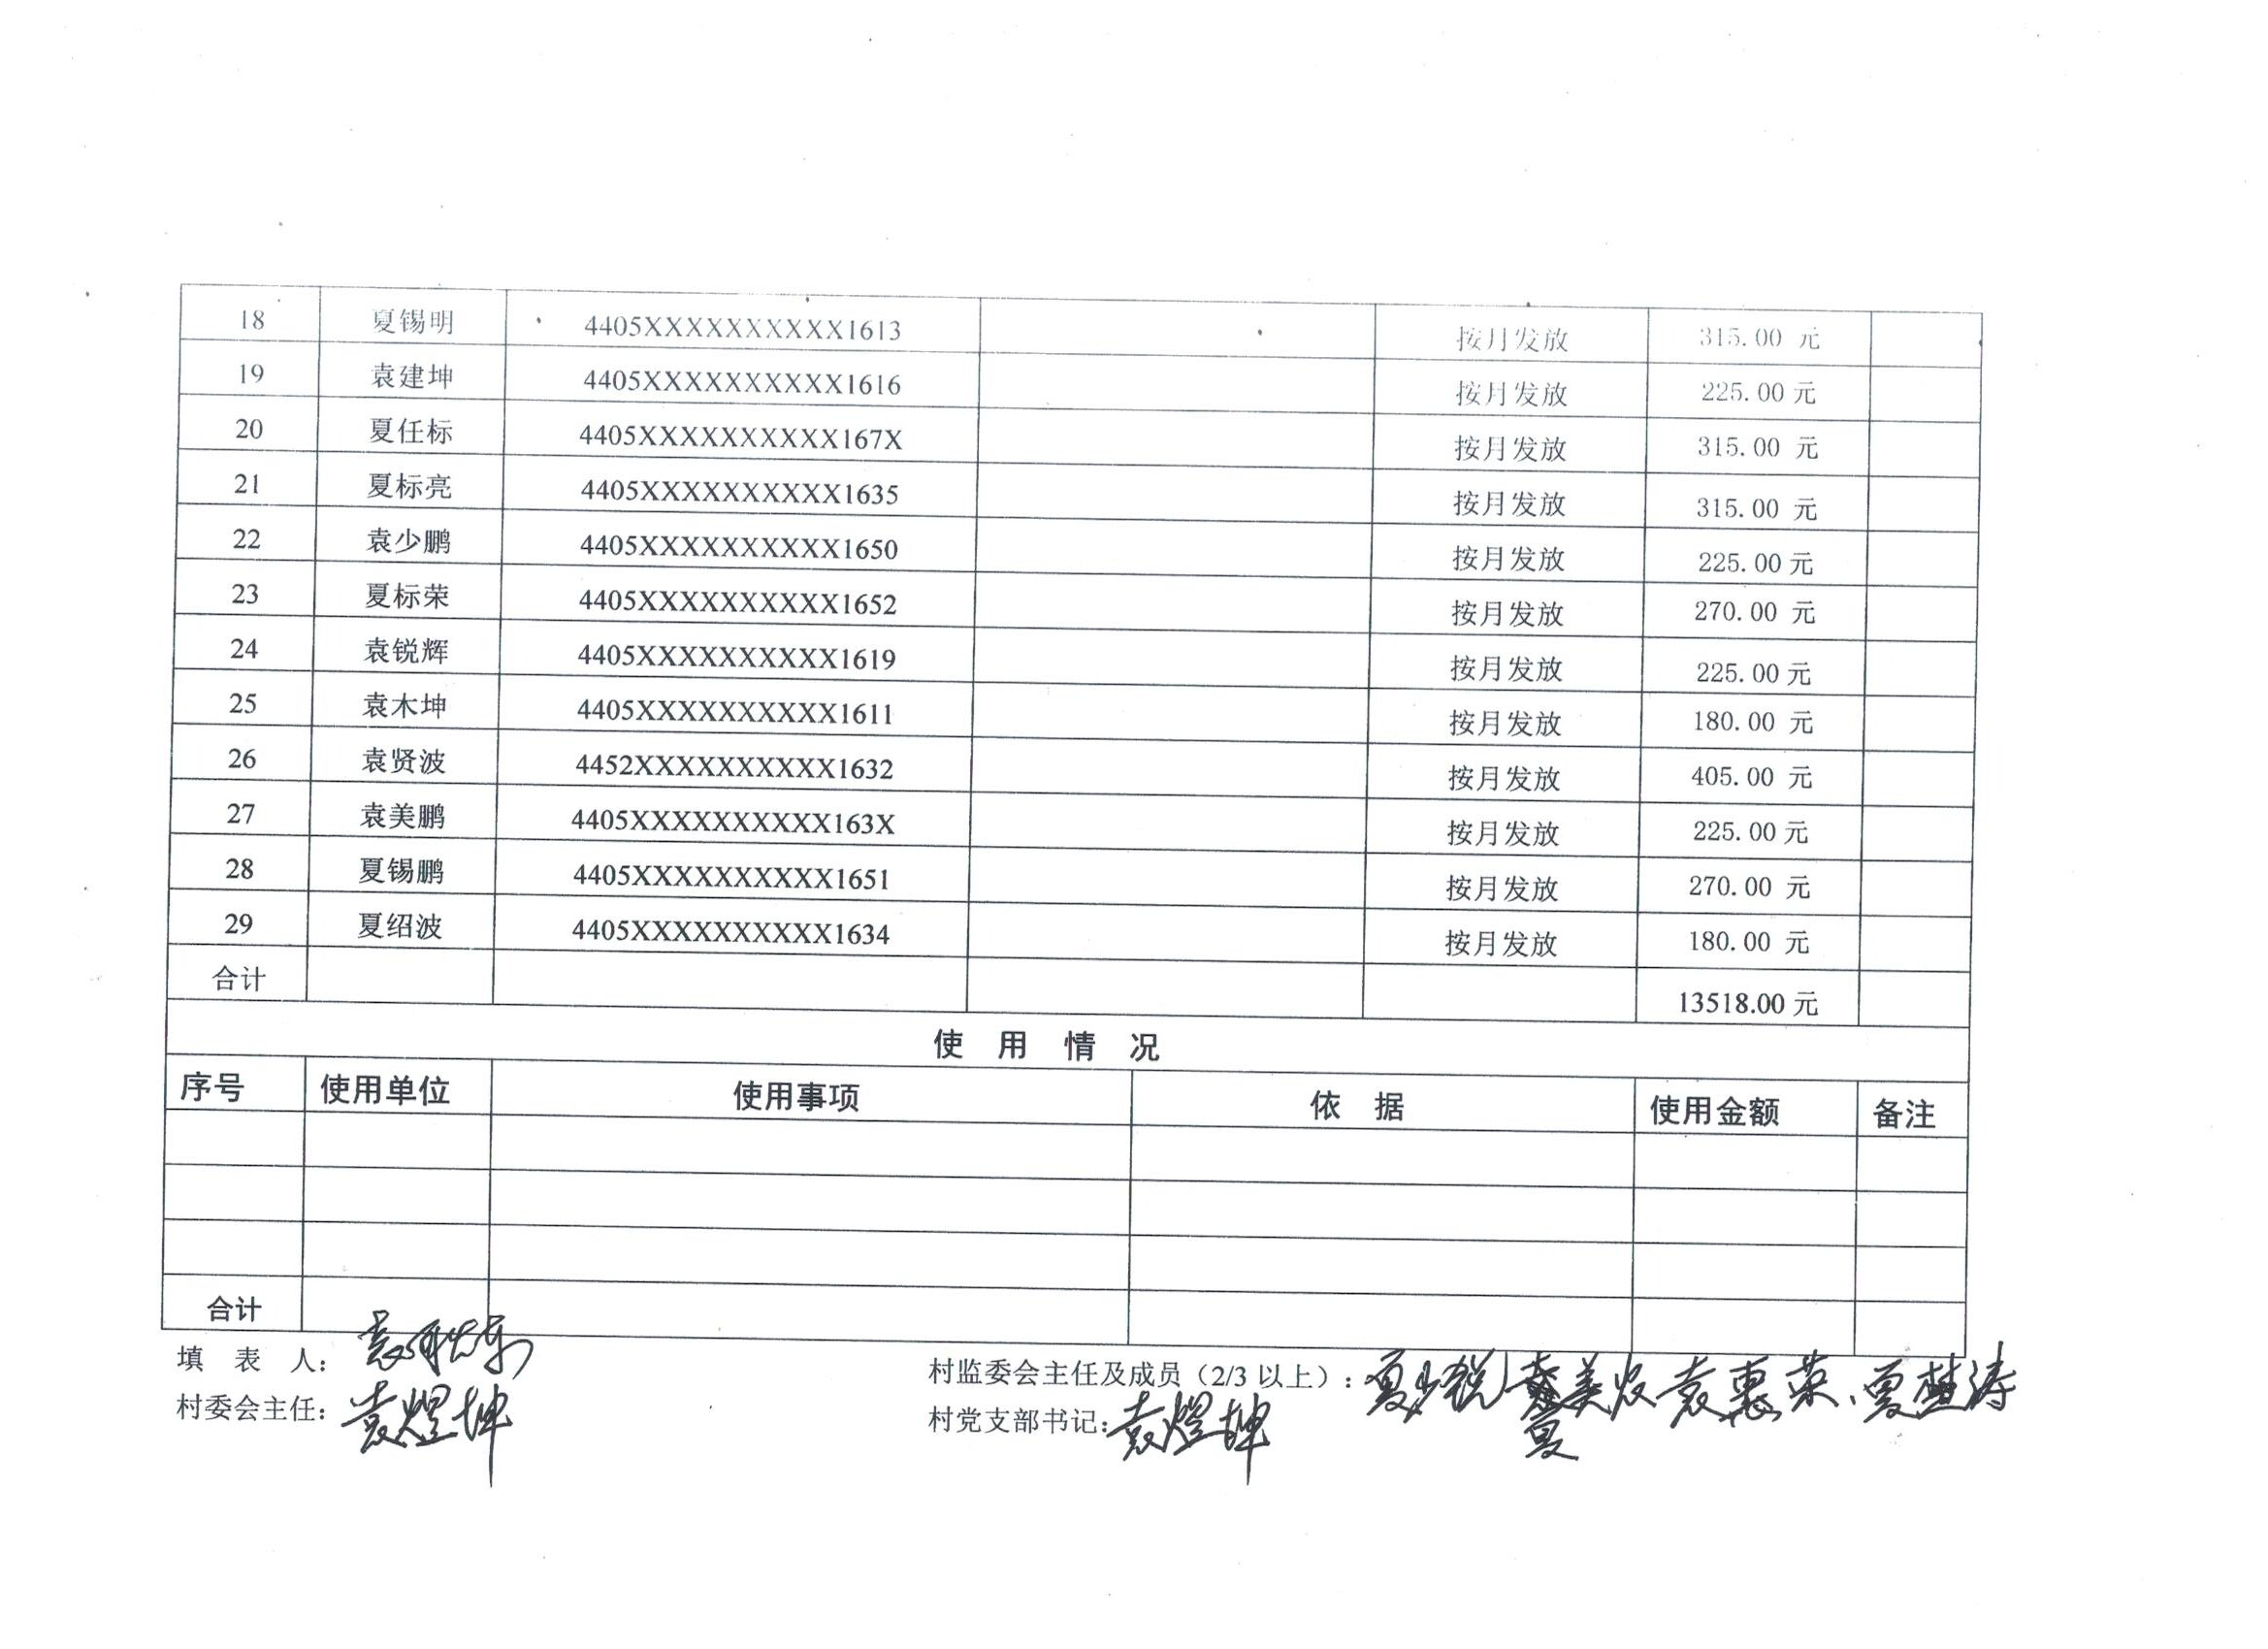 18 夏锡明 4405XXXXXXXXXX1613 按月发放 315.00 元
19 袁建坤 4405XXXXXXXXXX1616 按月发放 225.00元
20 夏任标 4405XXXXXXXXXX167X 按月发放 315.00 元
21 夏标亮 4405XXXXXXXXXX1635 按月发放 315.00 元
22 袁少鹏 4405XXXXXXXXXX1650 按月发放 225.00元
23 夏标荣 4405XXXXXXXXXX1652 按月发放 270.00 元
24 袁锐辉 4405XXXXXXXXXX1619 按月发放 225.00元
25 袁木坤 4405XXXXXXXXXX1611 按月发放 180.00 元
26 袁贤波 4452XXXXXXXXXX1632 按月发放 405.00 元
27 袁美鹏 4405XXXXXXXXXX163X 按月发放 225.00元
28 夏锡鹏 4405XXXXXXXXXX1651 按月发放 270.00 元
29 夏绍波 4405XXXXXXXXXX1634 按月发放 180.00 元
合计 13518.00元
使 用 情 况
序号 使用单位 使用事项 依 据 使用金额 备注
合计
填 表 人： 袁 村监委会主任及成员（2/3 以上）：夏少锐 美 袁惠荣、夏楚涛
村委会主任：袁煜坤 村党支部书记：袁煜坤 夏